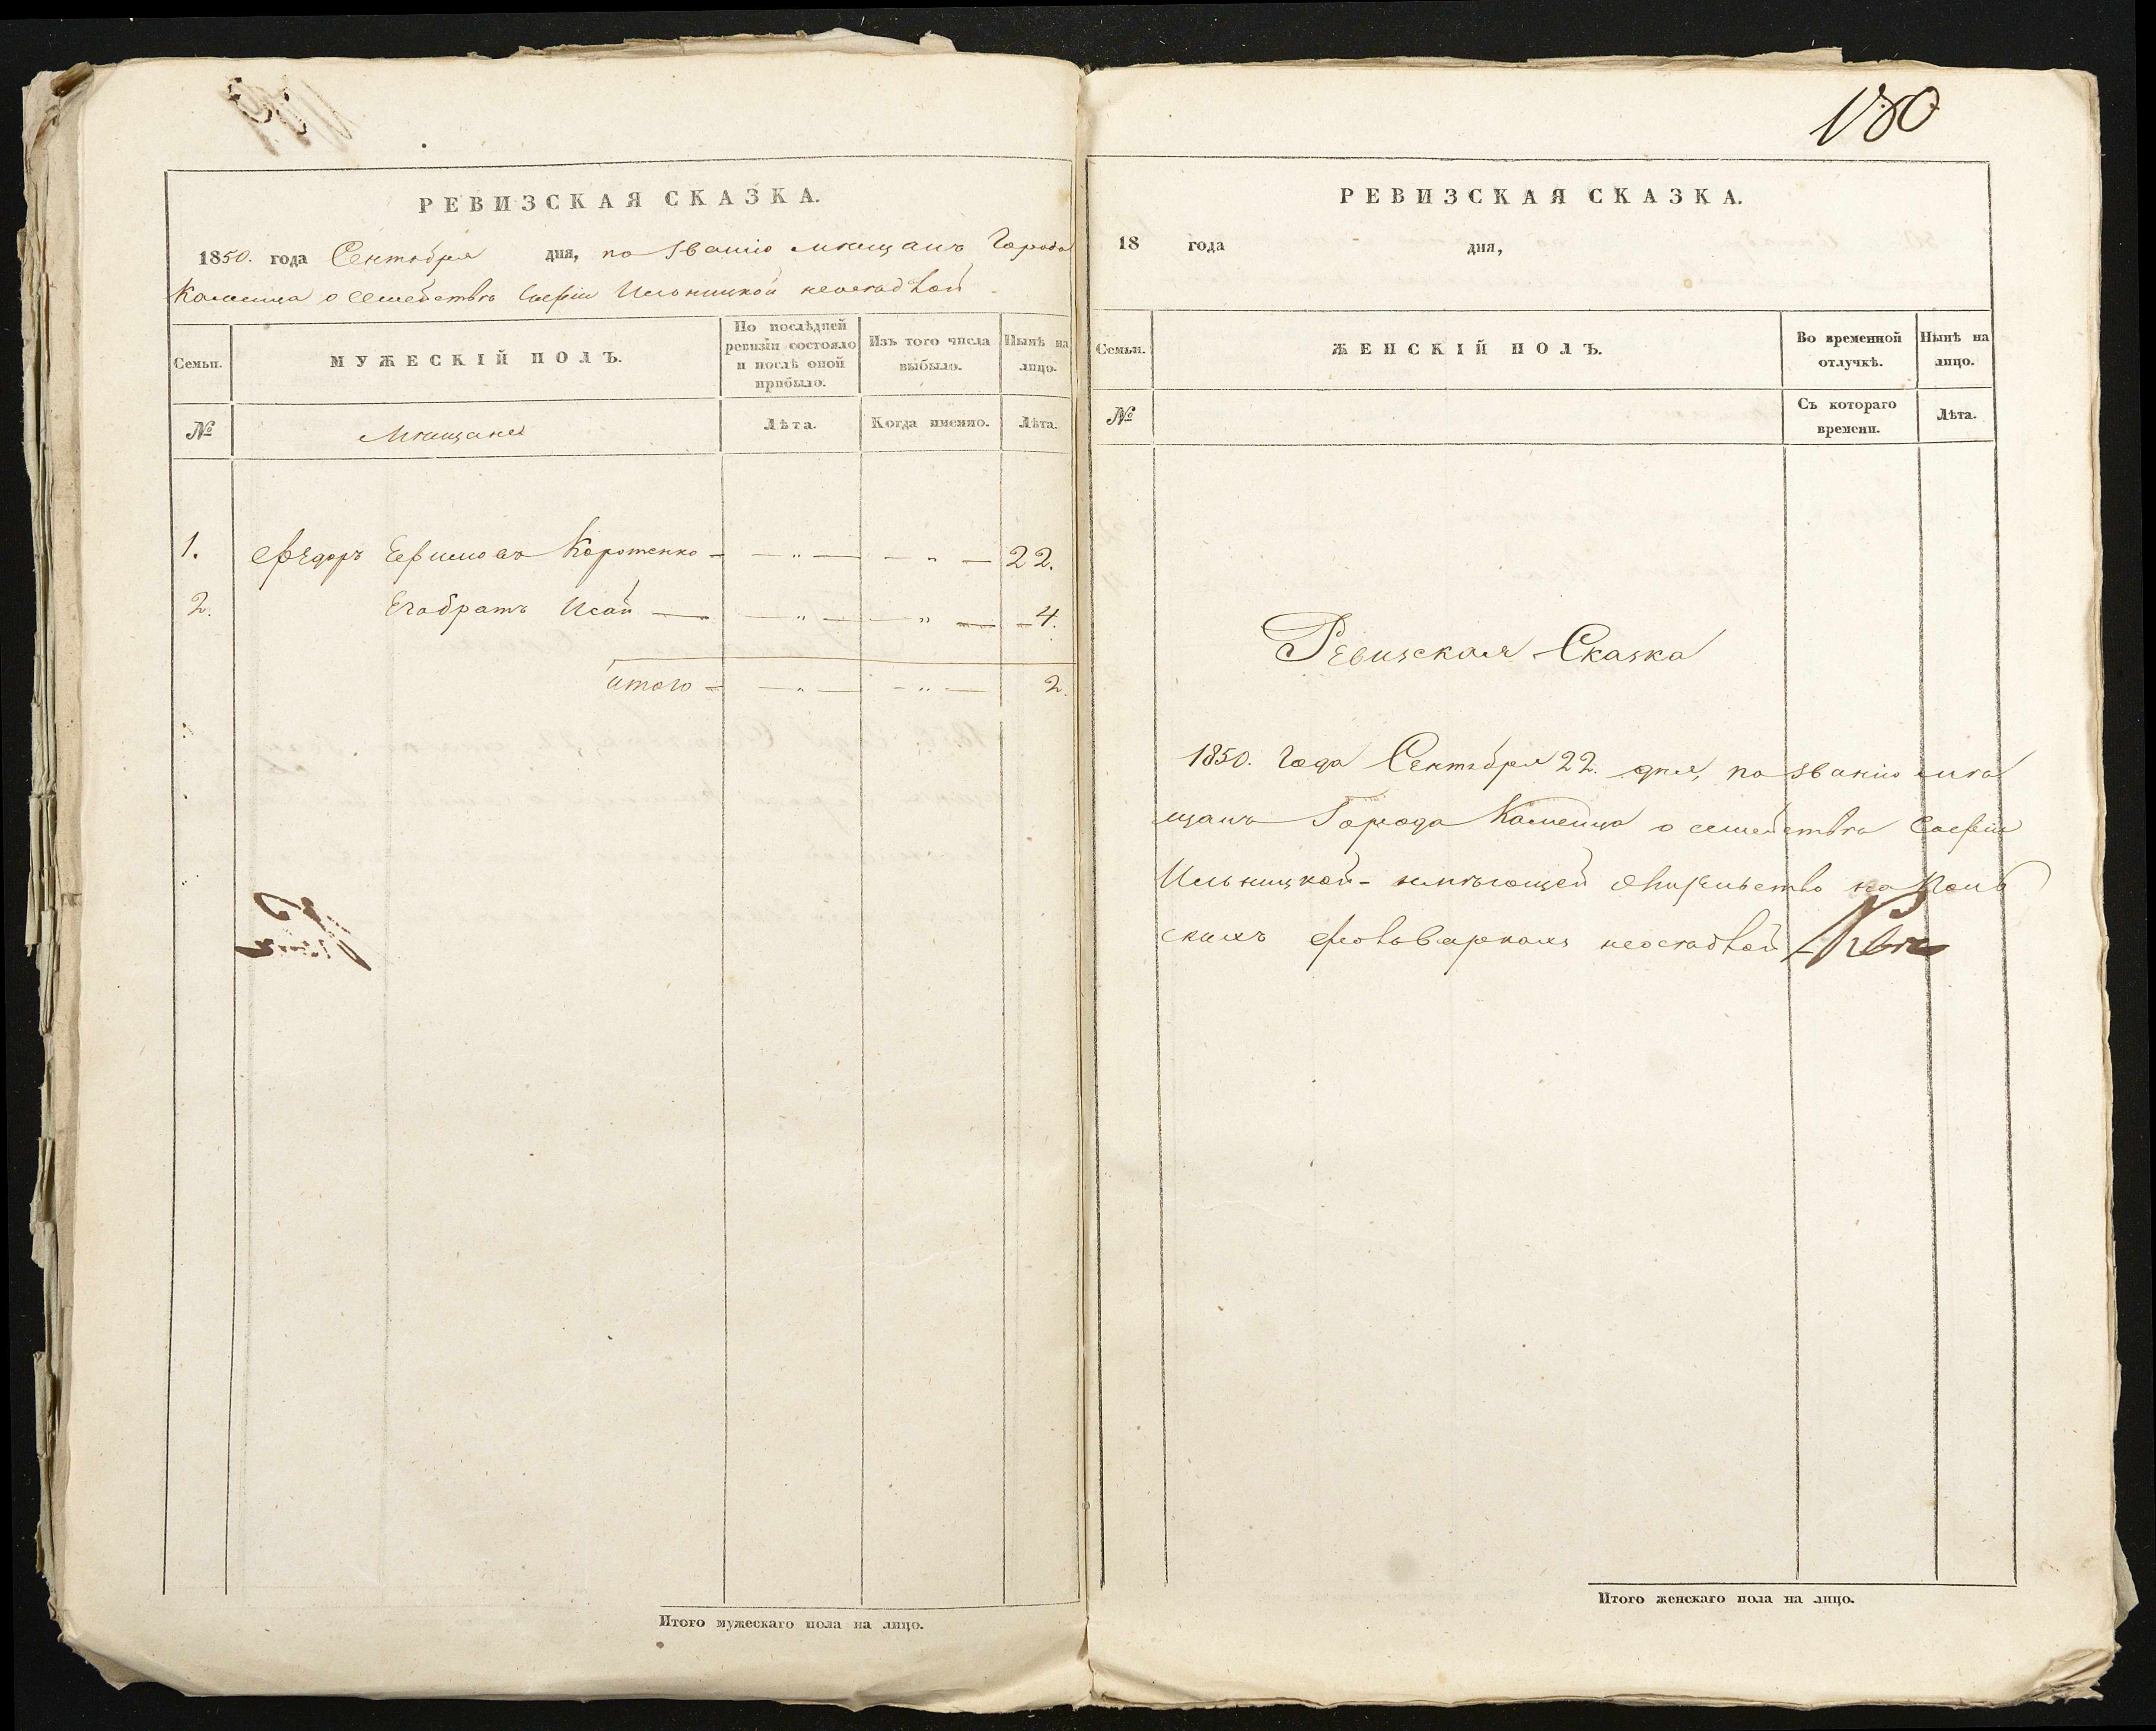 РЕВИЗСКАЯ СКАЗКА.
1850. года Сентября дня, по званію мѣщанъ Города
Каменца о семействѣ Софіи Ильницкой неосѣдлой
Семьи.
МУЖЕСКІЙ ПОЛЪ.
По послѣдней ревизіи состояло и послѣ оной прибыло.
Изъ того числа выбыло.
Нынѣ на лицо.
№
Мѣщане
Лѣта.
Когда именно.
Лѣта.
1. Фѣдоръ Ефимовъ Коротенко - — " — — " — 22.
2. Его братъ Исай — — " — — " — 4.
итого - — " — - " — 2.
Итого мужескаго пола на лицо.
180
РЕВИЗСКАЯ СКАЗКА.
18 года дня,
Семьи.
ЖЕНСКІЙ ПОЛЪ.
Во временной отлучкѣ.
Нынѣ на лицо.
№
Съ котораго времени.
Лѣта.
Ревизская Сказка
1850. Года Сентября 22. дня, по званію мѣ
щанъ Города Каменца о семействѣ Софіи
Ильницкой - имѣющей жительство на Поль
скихъ фольваркахъ неосѣдлой
Итого женскаго пола на лицо.